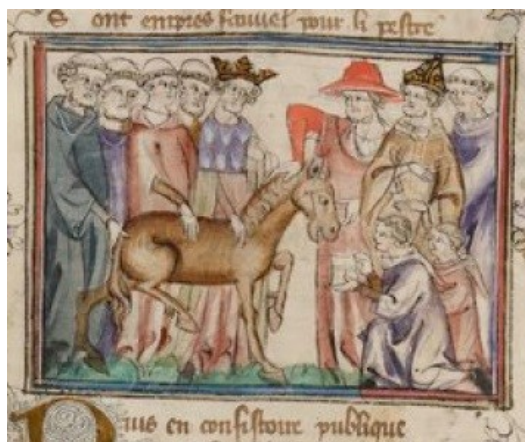 S ont empres fauvel pour li pestre
Puis en consistoire publique